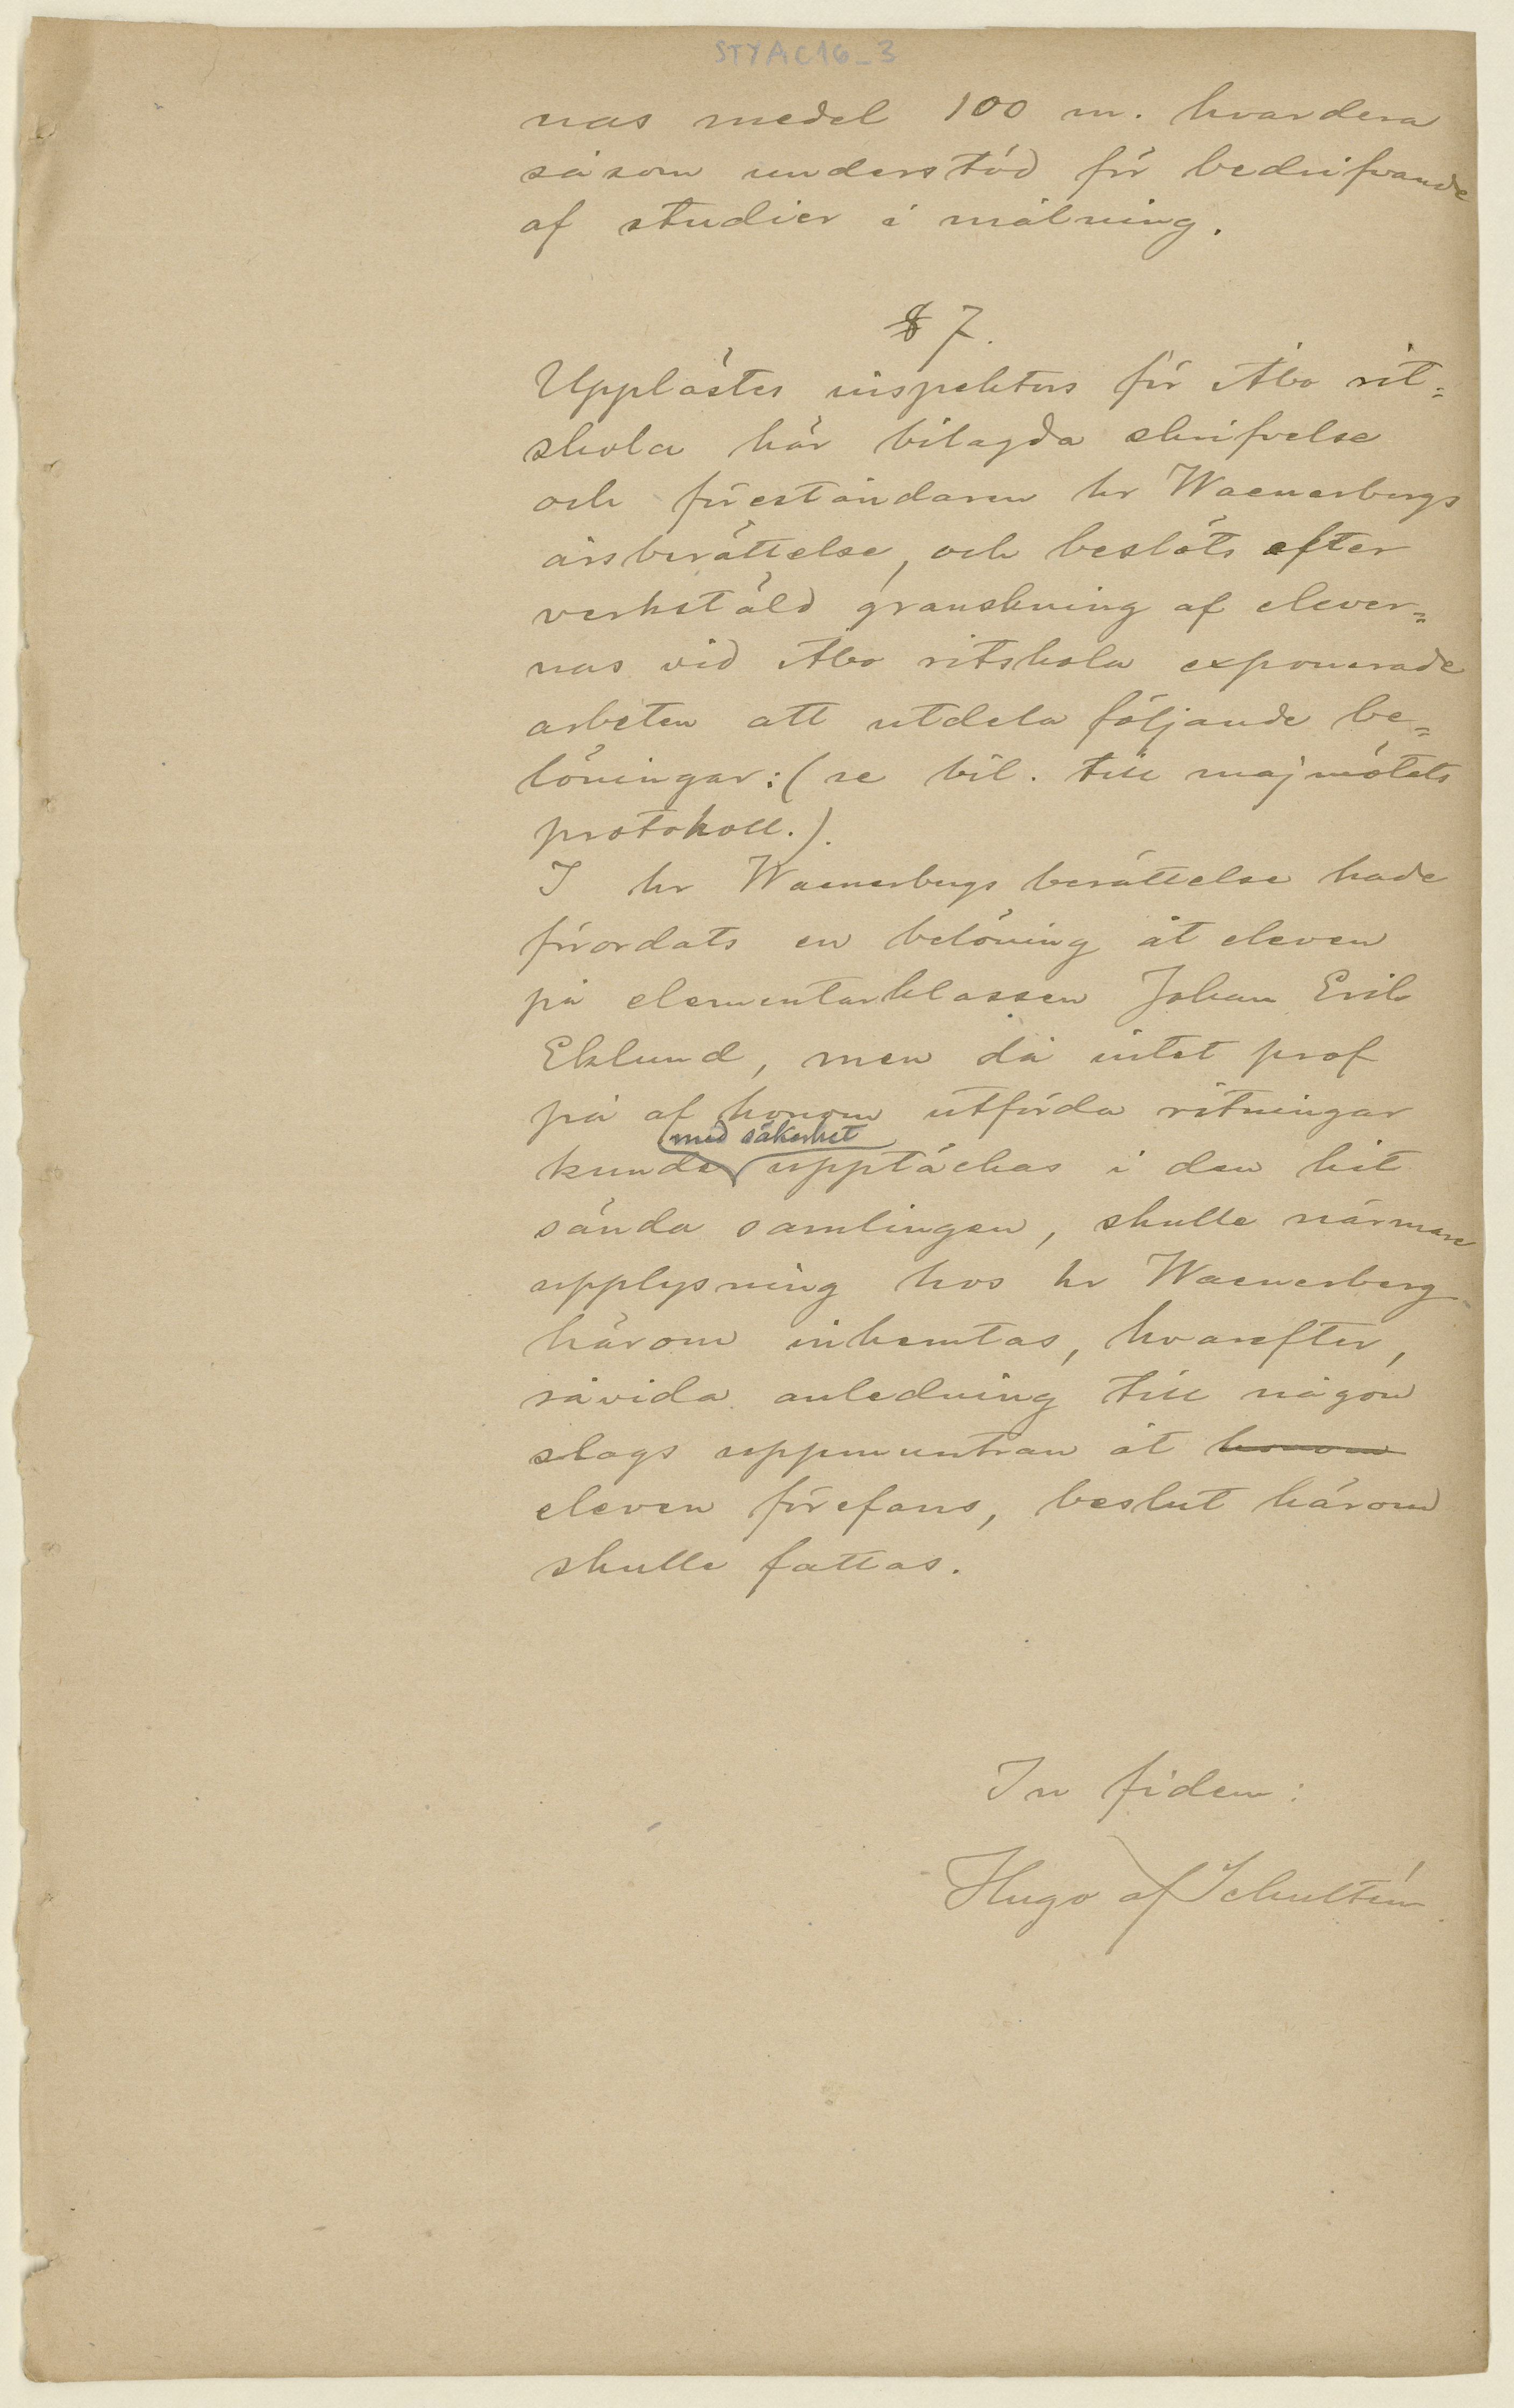 STYAC16_3
nas medel 100 m. hvardera
såsom understöd för bedrifvande
af studier i målning.
§ 7.
Upplästes inspektors för Åbo rit=
skola här bilagda skrifvelse
och föreståndaren hr Waenerbergs
årsberättelse, och beslöts efter
verkstäld granskning af elever=
nas vid Åbo ritskola exponerade
arbeten att utdela följande be=
löningar: (se bil. till majmötets
protokoll.).
I hr Waenerbergs berättelse hade
förordats en belöning åt eleven
på elementarklassen Johan Erik
Eklund, men då intet prof
på af honom utförda ritningar
med säkerhet
kunde upptäckas i den hit
sända samlingen, skulle närmare
upplysning hos hr Waenerberg
härom inhemtas, hvarefter,
såvida anledning till någon
slags uppmuntran åt honom
eleven förefans, beslut härom
skulle fattas.
In fidem:
Hugo af Schultén